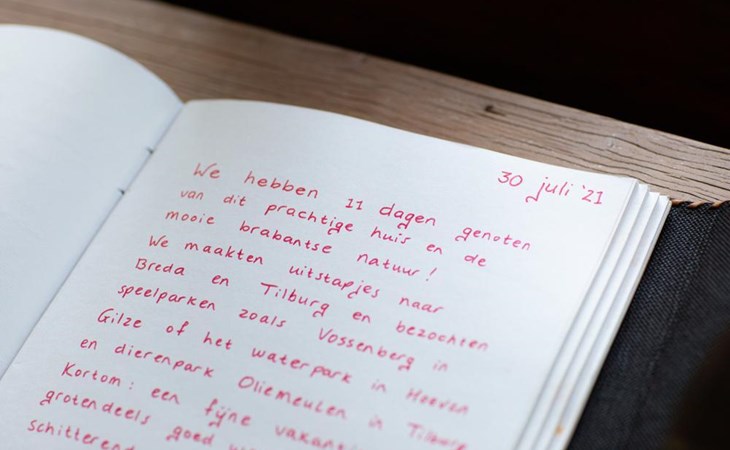 30 juli '21
We hebben 11 dagen genoten
van dit prachtige huis en de
mooie brabantse natuur!
We maakten uitstapjes naar
Breda en Tilburg en bezochten
speelparken zoals Vossenberg in
Gilze of het waterpark in Hoeven
en dierenpark Oliemeulen in Tilburg
Kortom: een fijne vakanti
grotendeels goed w
schitterend